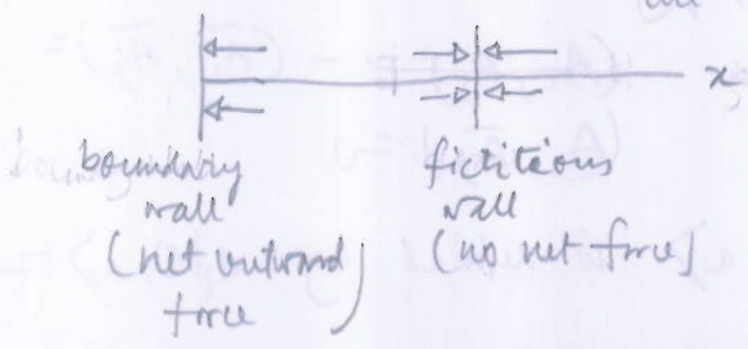 x
boundary
wall
(net outward
force)
fictiteous
wall
(no net force)